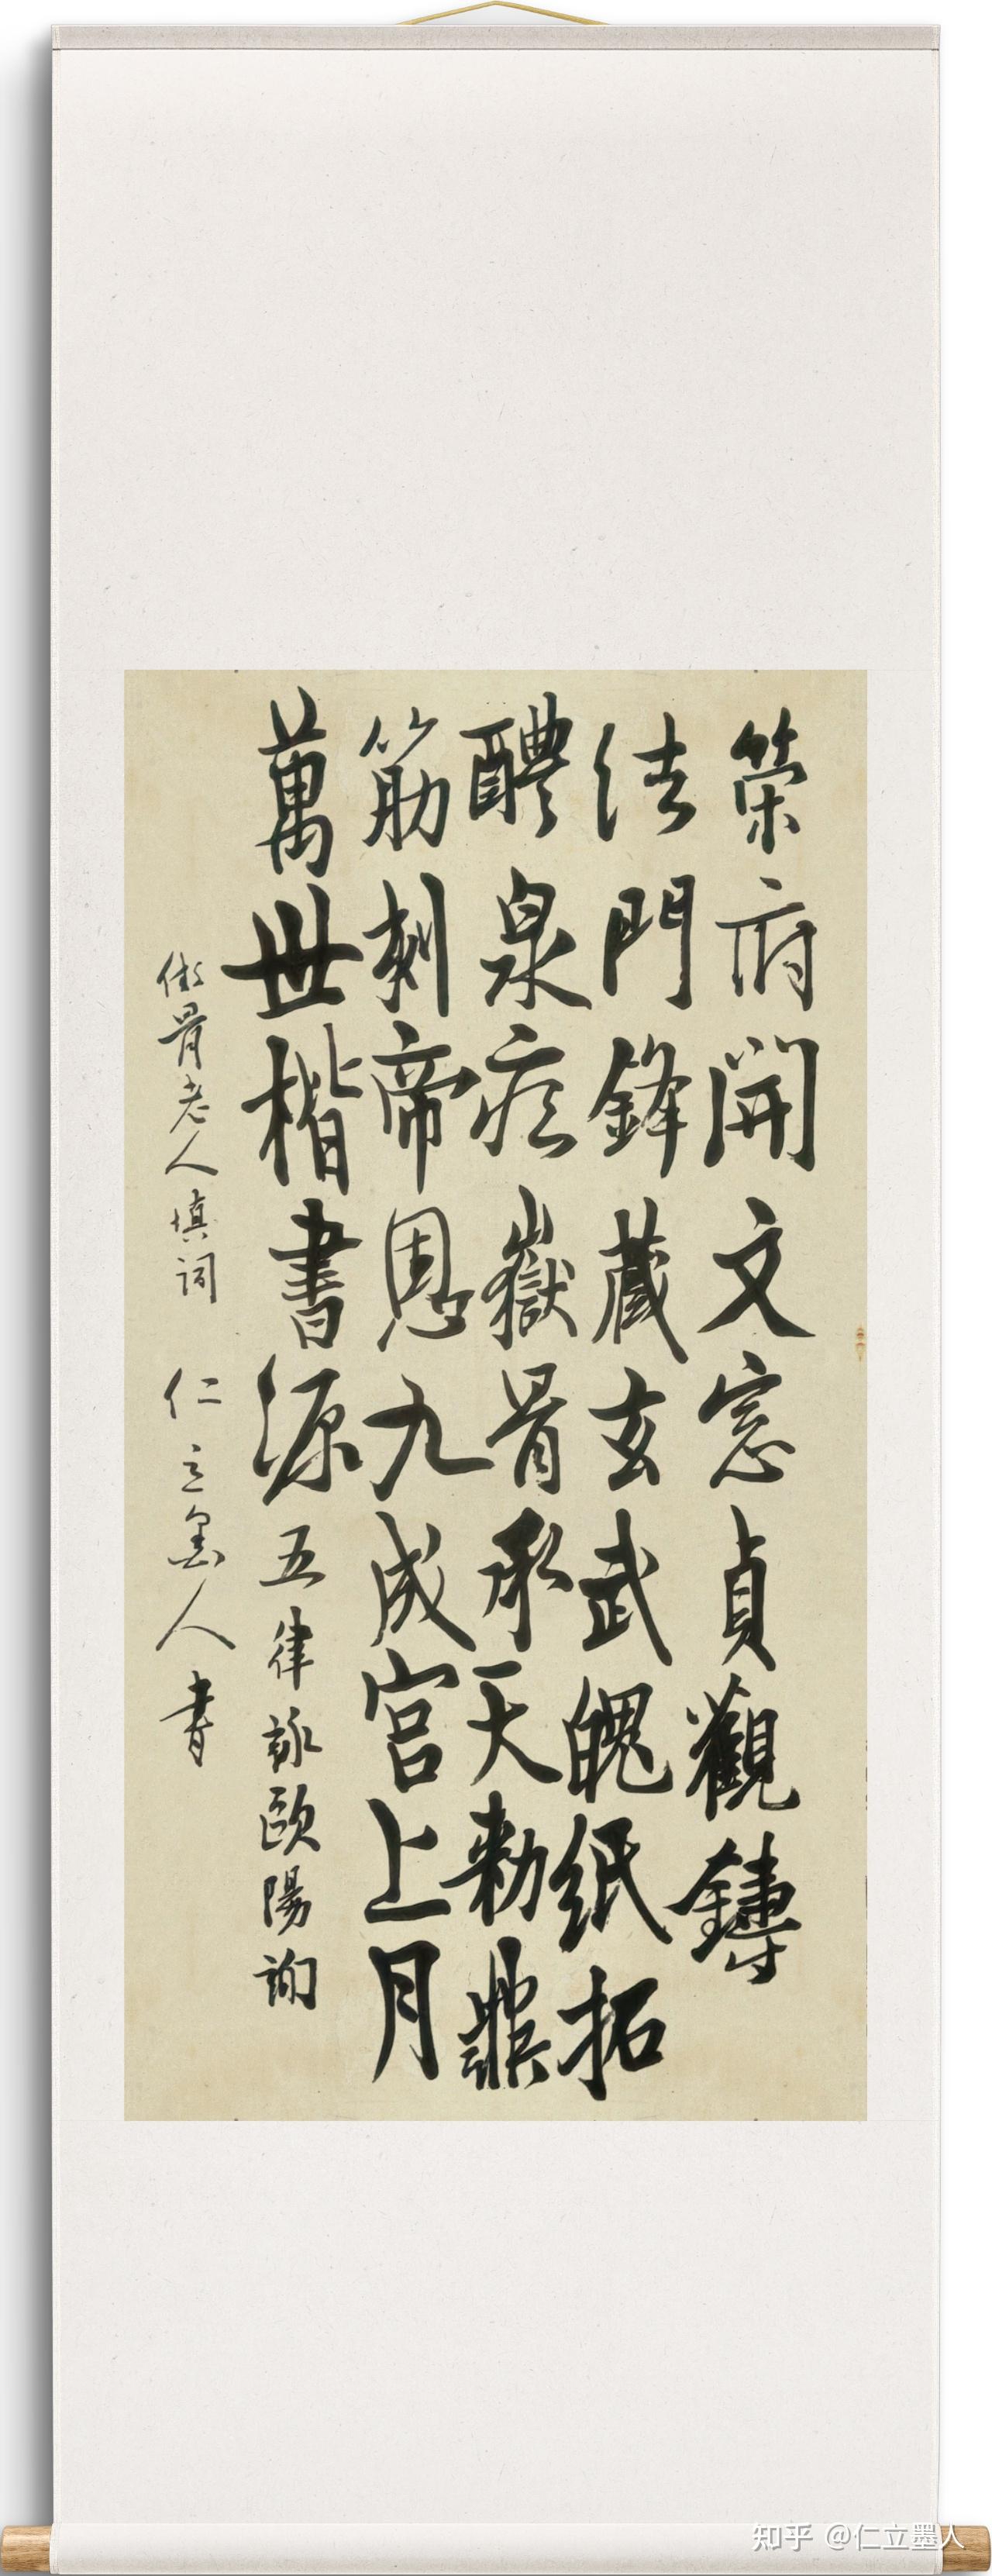 策府開文窓貞觀鑄
法門鋒藏玄武魄紙拓
醴泉痕嶽骨承天勅鼎
筋刻帝恩九成宮上月
萬世楷書源五律詠歐陽詢
傲骨老人填詞 仁立墨人書
知乎 @仁立墨人